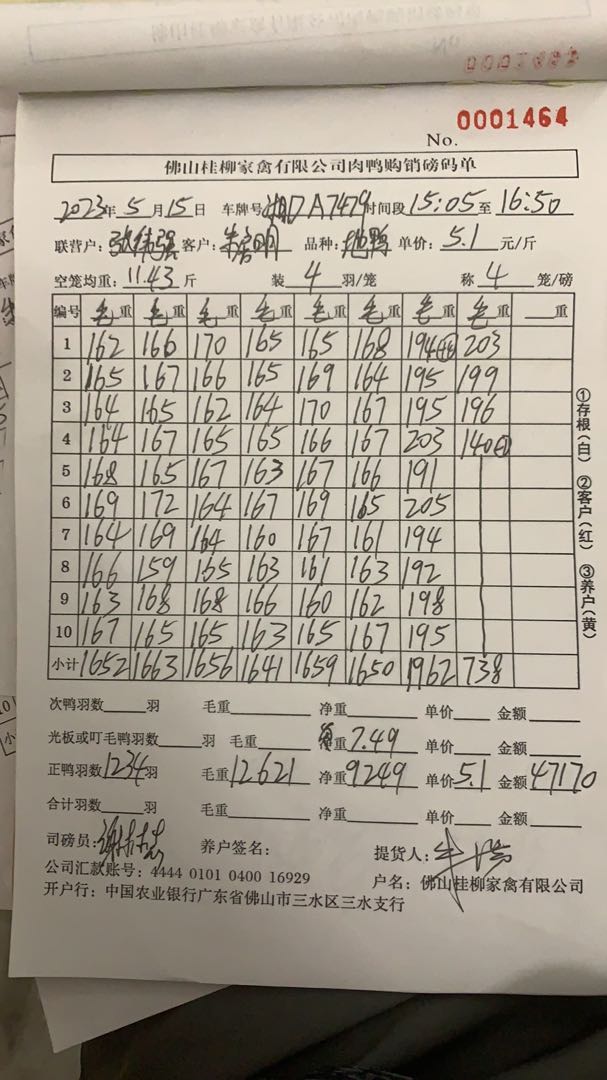 0001464
No.
佛山桂柳家禽有限公司肉鸭购销磅码单
2023年5月15日 车牌号 湘D A7479 时间段 15:05 至 16:50
联营户: 张伟强 客户: 朱 明 品种: 鸭 单价: 5.1 元/斤
空笼均重: 11.43 斤 装 4 羽/笼 称 4 笼/磅
编号 毛重 毛重 毛重 毛重 毛重 毛重 毛重 毛重 重
1 162 166 170 165 165 168 194 203
2 165 167 166 165 169 164 195 199
3 164 165 162 164 170 167 195 196
4 164 167 165 165 166 167 203 140
5 168 165 167 163 167 166 191
6 169 172 164 167 169 165 205
7 164 169 164 160 167 161 194
8 166 159 165 163 161 163 192
9 163 168 168 166 160 162 198
10 167 165 165 163 165 167 195
小计 1652 1663 1656 1641 1659 1650 1962 738
①存根(白) ②客户(红) ③养户(黄)
次鸭羽数 羽 毛重 净重 单价 金额
光板或叮毛鸭羽数 羽 毛重 重 7.49 单价 金额
正鸭羽数 1234 羽 毛重 12621 净重 9249 单价 5.1 金额 47170
合计羽数 羽 毛重 净重 单价 金额
司磅员: 谢 养户签名: 提货人:
公司汇款账号: 4444 0101 0400 16929 户名: 佛山桂柳家禽有限公司
开户行: 中国农业银行广东省佛山市三水区三水支行